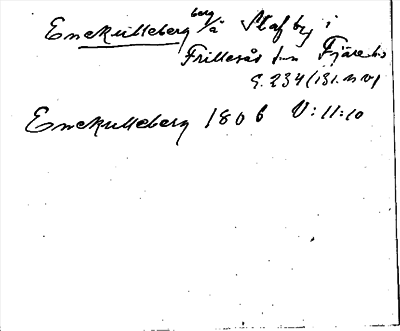 Enekulleberg berg å Stafby i
Frillesås sn Fjäre hd
G. 234 (131. N V)
Enekulleberg 1806 V:11:10